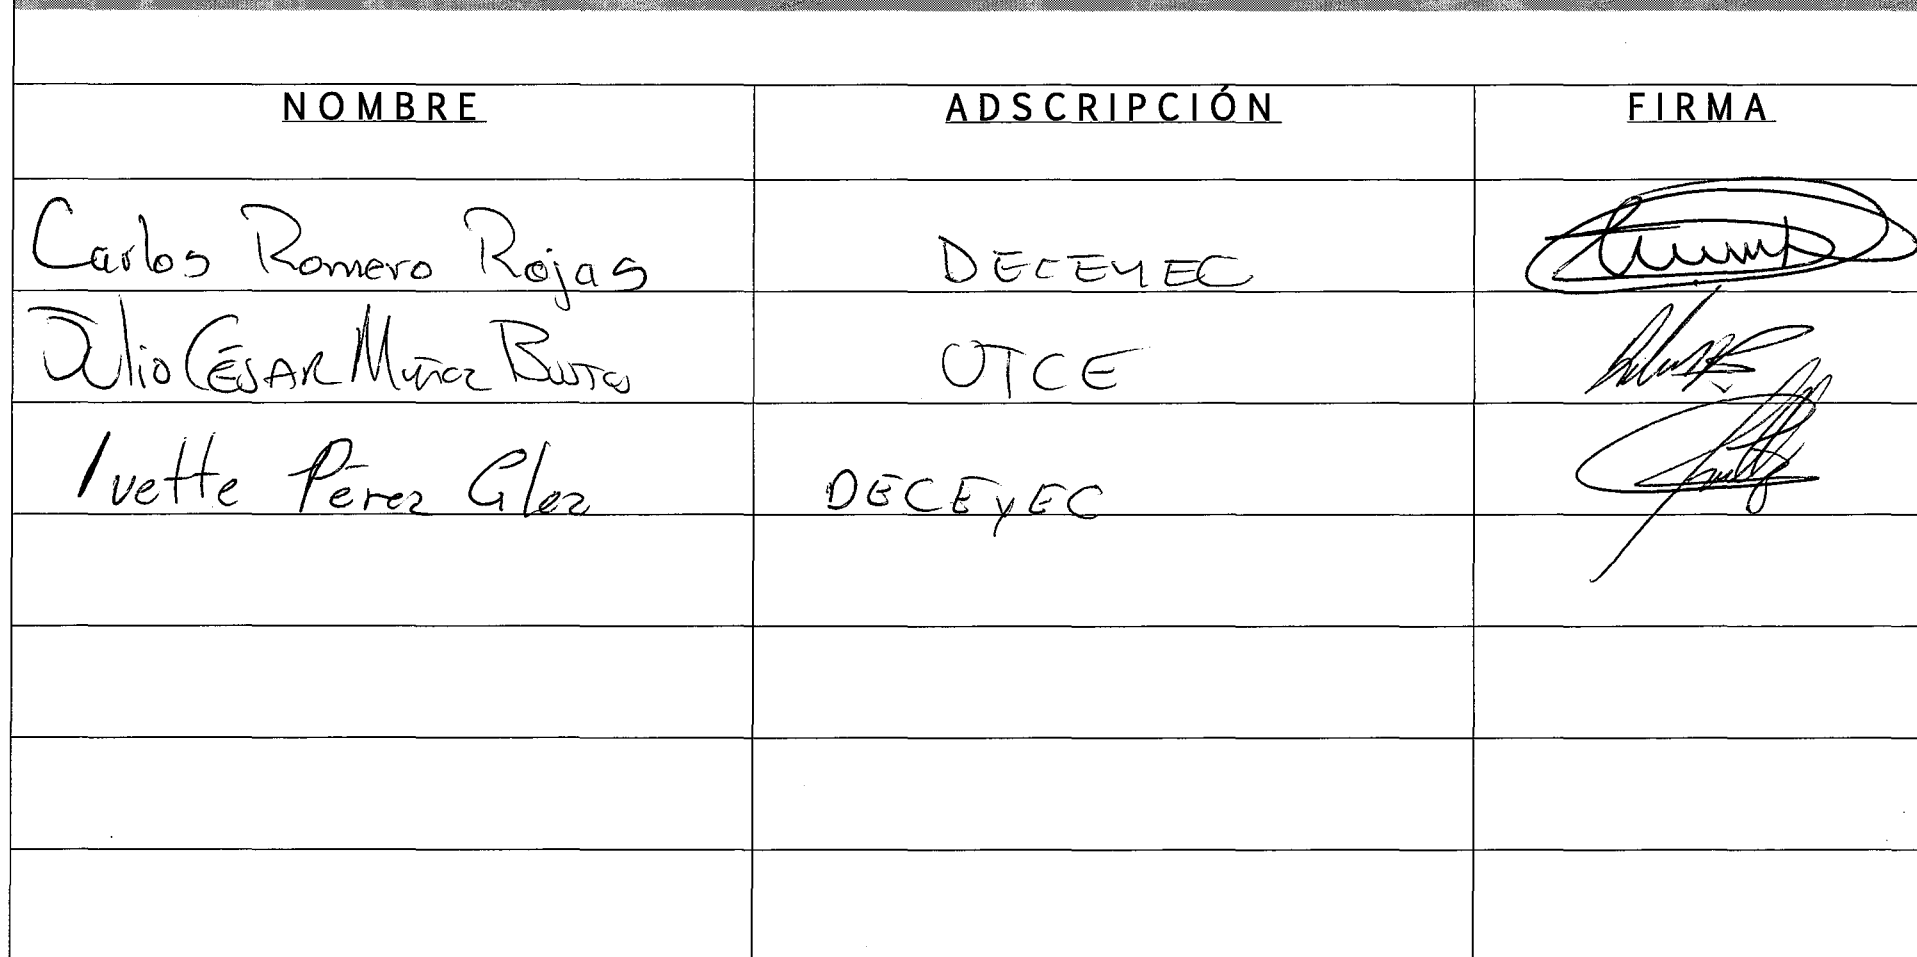 NOMBRE ADSCRIPCIÓN FIRMA
Carlos Romero Rojas DECEYEC
Julio CÉSAR Muñoz UTCE
Ivette Pérez Glez DECEyEC